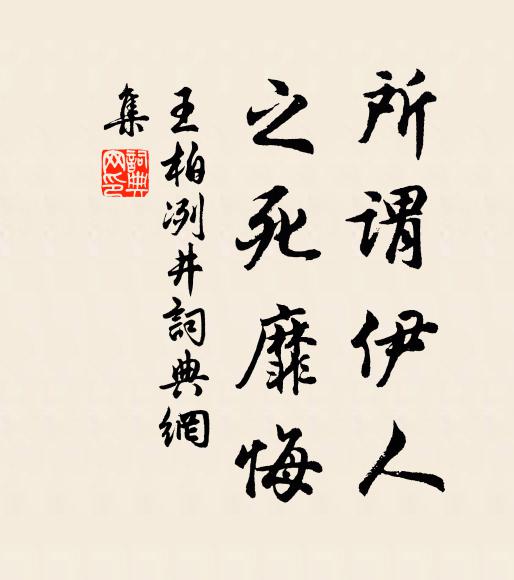 所谓伊人
之死靡悔
王柏冽井詞典網
集
詞典
网印